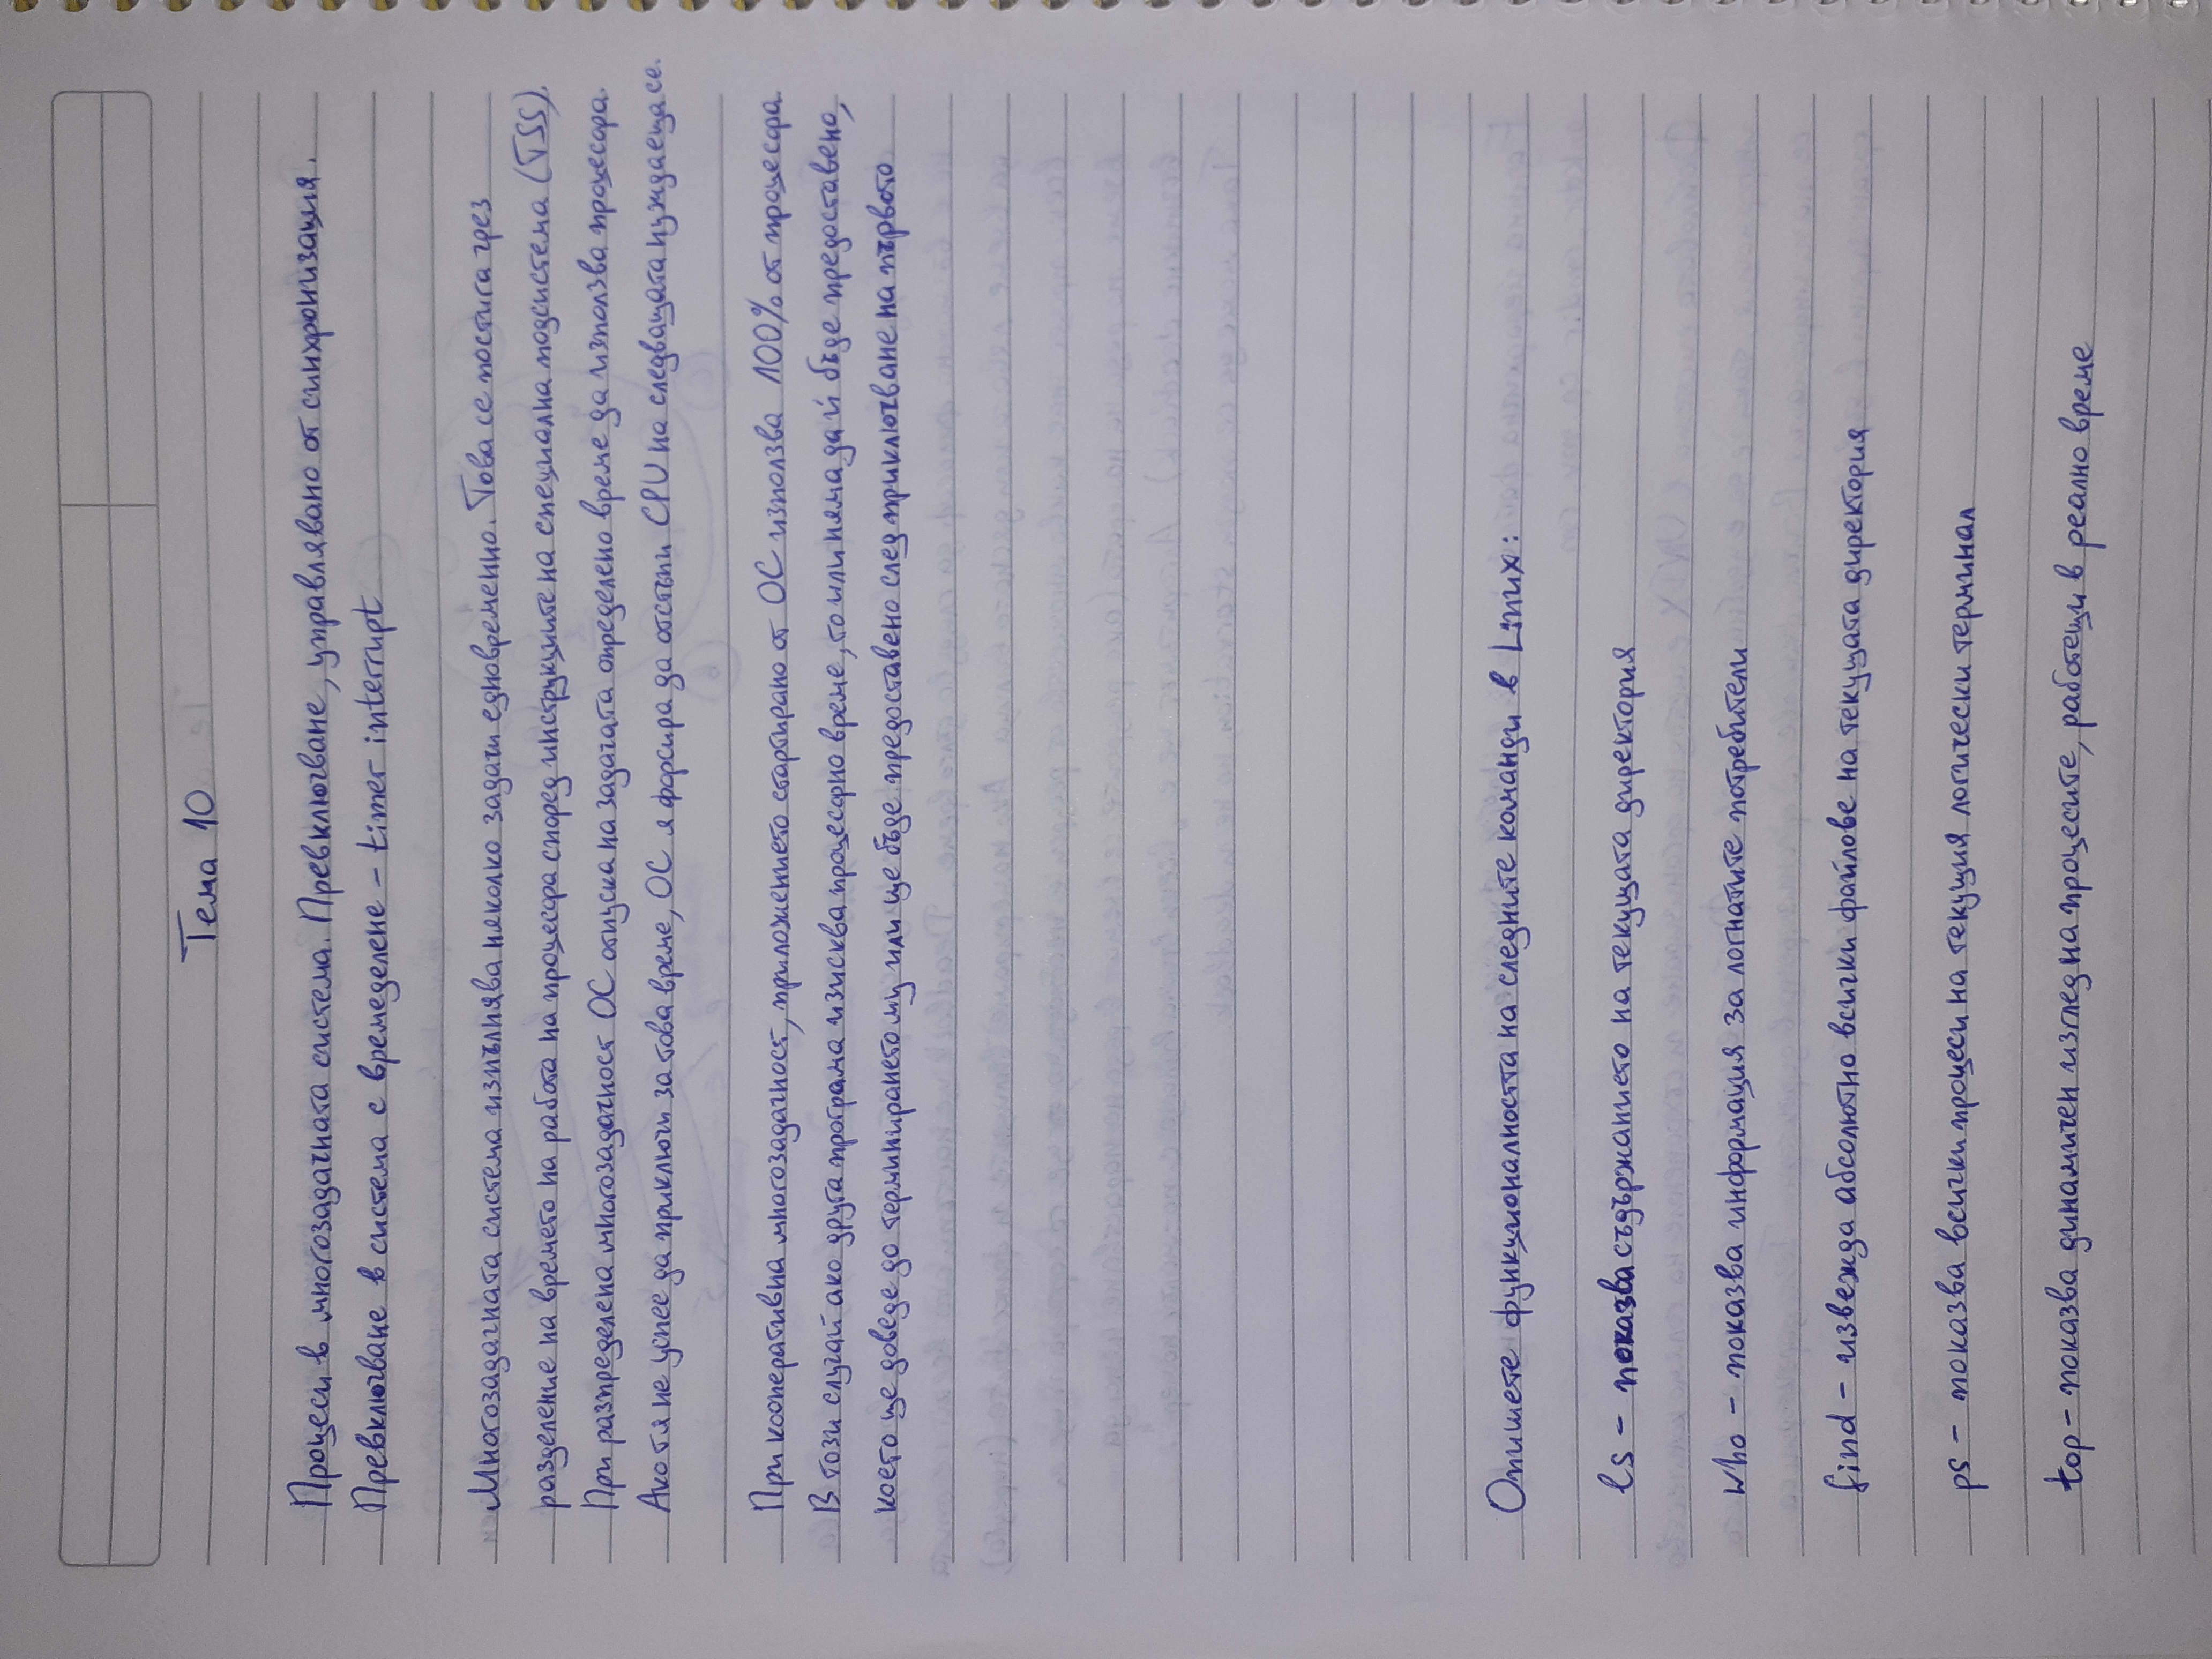 Тема 10
Процеси в многозадачната система. Превключване, управлявано от синхронизация.
Превключване в система с времеделене – timer interrupt
Многозадачната система изпълнява няколко задачи едновременно. Това се постига чрез
разделение на времето на работа на процесора според инструкциите на специална подсистема (TSS).
При разпределена многозадачност ОС отпуска на задачата определено време да използва процесора.
Ако тя не успее да приключи за това време, ОС я форсира да отстъпи CPU на следващата нуждаеща се.
При кооперативна многозадачност, приложението стартирано от ОС използва 100% от процесора.
В този случай ако друга програма изисква процесорно време, то или няма да ѝ бъде предоставено,
което ще доведе до терминирането му или ще бъде предоставено след приключване на първото
Опишете функционалността на следните команди в Linux:
ls – показва съдържанието на текущата директория
who – показва информация за логнатите потребители
find – извежда абсолютно всички файлове на текущата директория
ps – показва всички процеси на текущия логически терминал
top – показва динамичен изглед на процесите, работещи в реално време